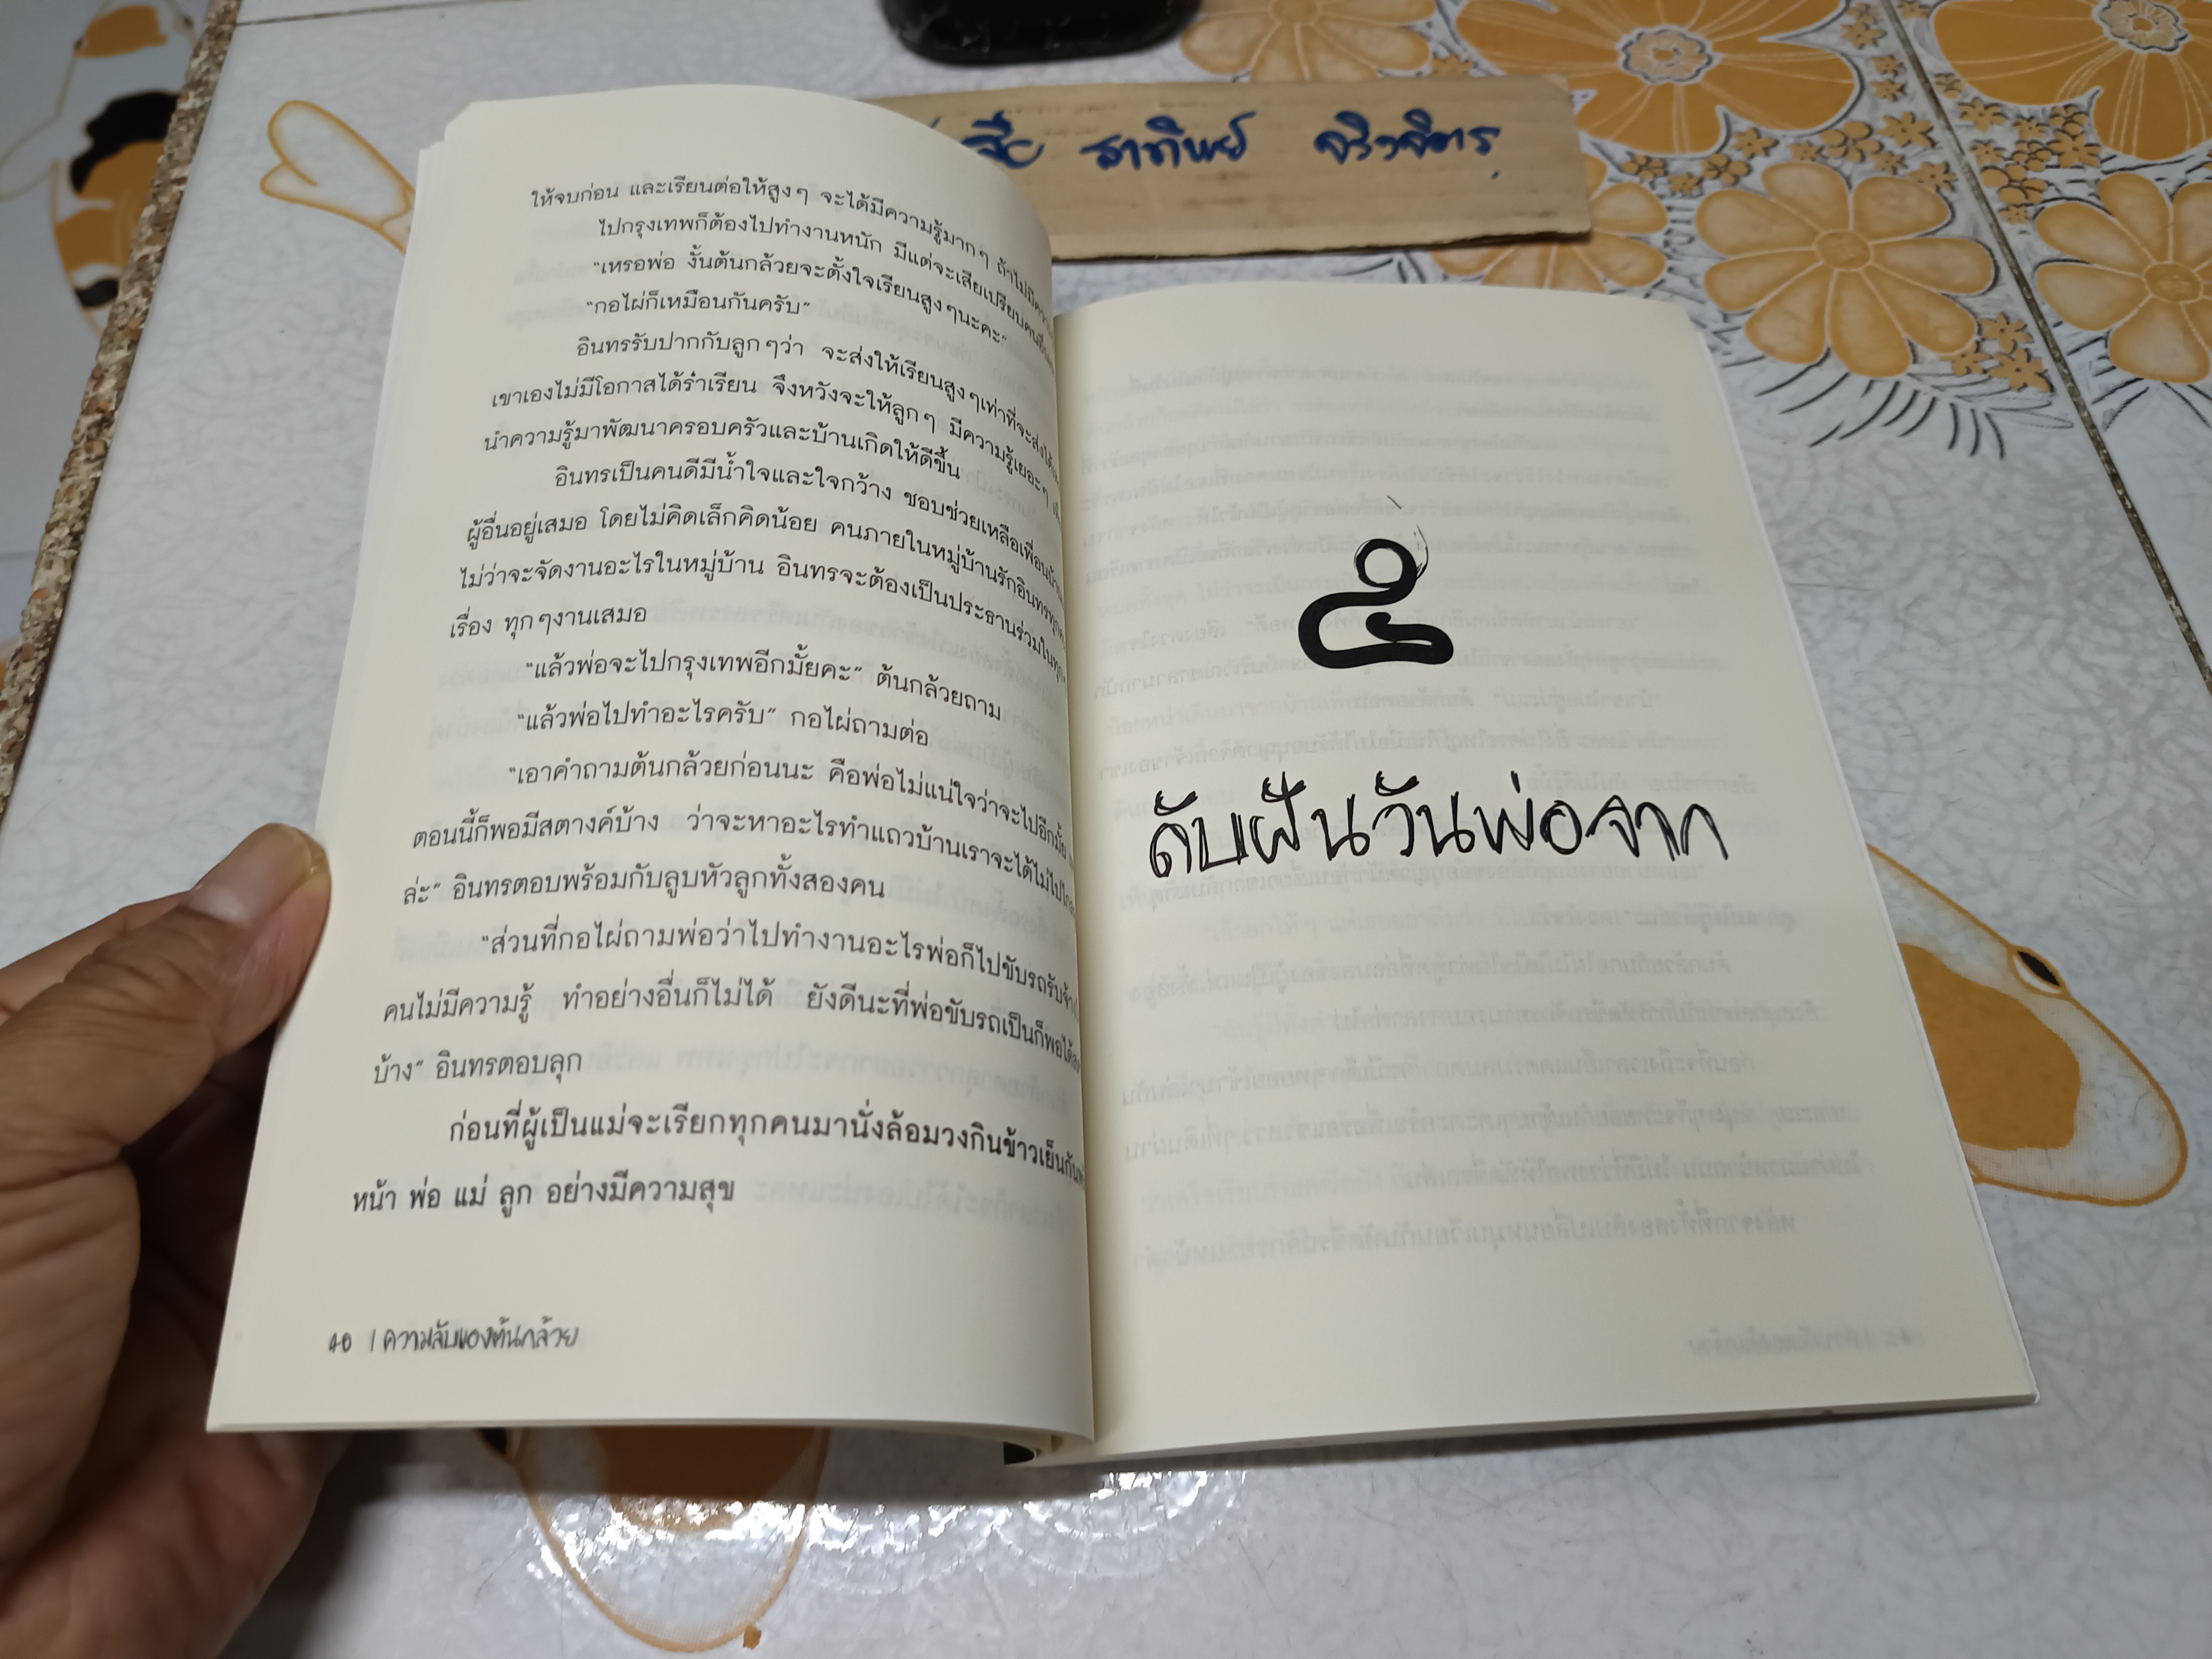 สาทิพย์
ให้จบก่อน และเรียนต่อให้สูงๆ จะได้มีความรู้มากๆ ถ้าไม่มีความ
ไปกรุงเทพก็ต้องไปทำงานหนัก มีแต่จะเสียเปรียบคนอื่น
“เหรอพ่อ งั้นต้นกล้วยจะตั้งใจเรียนสูงๆนะคะ”
“กอไผ่ก็เหมือนกันครับ”
อินทรรับปากกับลูกๆว่า จะส่งให้เรียนสูงๆเท่าที่จะส่งได้
เขาเองไม่มีโอกาสได้ร่ำเรียน จึงหวังจะให้ลูกๆ มีความรู้เยอะๆ
นำความรู้มาพัฒนาครอบครัวและบ้านเกิดให้ดีขึ้น
อินทรเป็นคนดีมีน้ำใจและใจกว้าง ชอบช่วยเหลือเพื่อนบ้าน
ผู้อื่นอยู่เสมอ โดยไม่คิดเล็กคิดน้อย คนภายในหมู่บ้านรักอินทรทุก
ไม่ว่าจะจัดงานอะไรในหมู่บ้าน อินทรจะต้องเป็นประธานร่วมในทุกๆ
เรื่อง ทุกๆงานเสมอ
“แล้วพ่อจะไปกรุงเทพอีกมั้ยคะ” ต้นกล้วยถาม
“แล้วพ่อไปทำอะไรครับ” กอไผ่ถามต่อ
“เอาคำถามต้นกล้วยก่อนนะ คือพ่อไม่แน่ใจว่าจะไปอีกมั้ย
ตอนนี้ก็พอมีสตางค์บ้าง ว่าจะหาอะไรทำแถวบ้านเราจะได้ไม่ไป
ล่ะ” อินทรตอบพร้อมกับลูบหัวลูกทั้งสองคน
“ส่วนที่กอไผ่ถามพ่อว่าไปทำงานอะไรพ่อก็ไปขับรถรับจ้าง
คนไม่มีความรู้ ทำอย่างอื่นก็ไม่ได้ ยังดีนะที่พ่อขับรถเป็นก็พอได้
บ้าง” อินทรตอบลูก
ก่อนที่ผู้เป็นแม่จะเรียกทุกคนมานั่งล้อมวงกินข้าวเย็นกัน
หน้า พ่อ แม่ ลูก อย่างมีความสุข
40 | ความลับของต้นกล้วย
๕
ดับฝันวันพ่อจาก